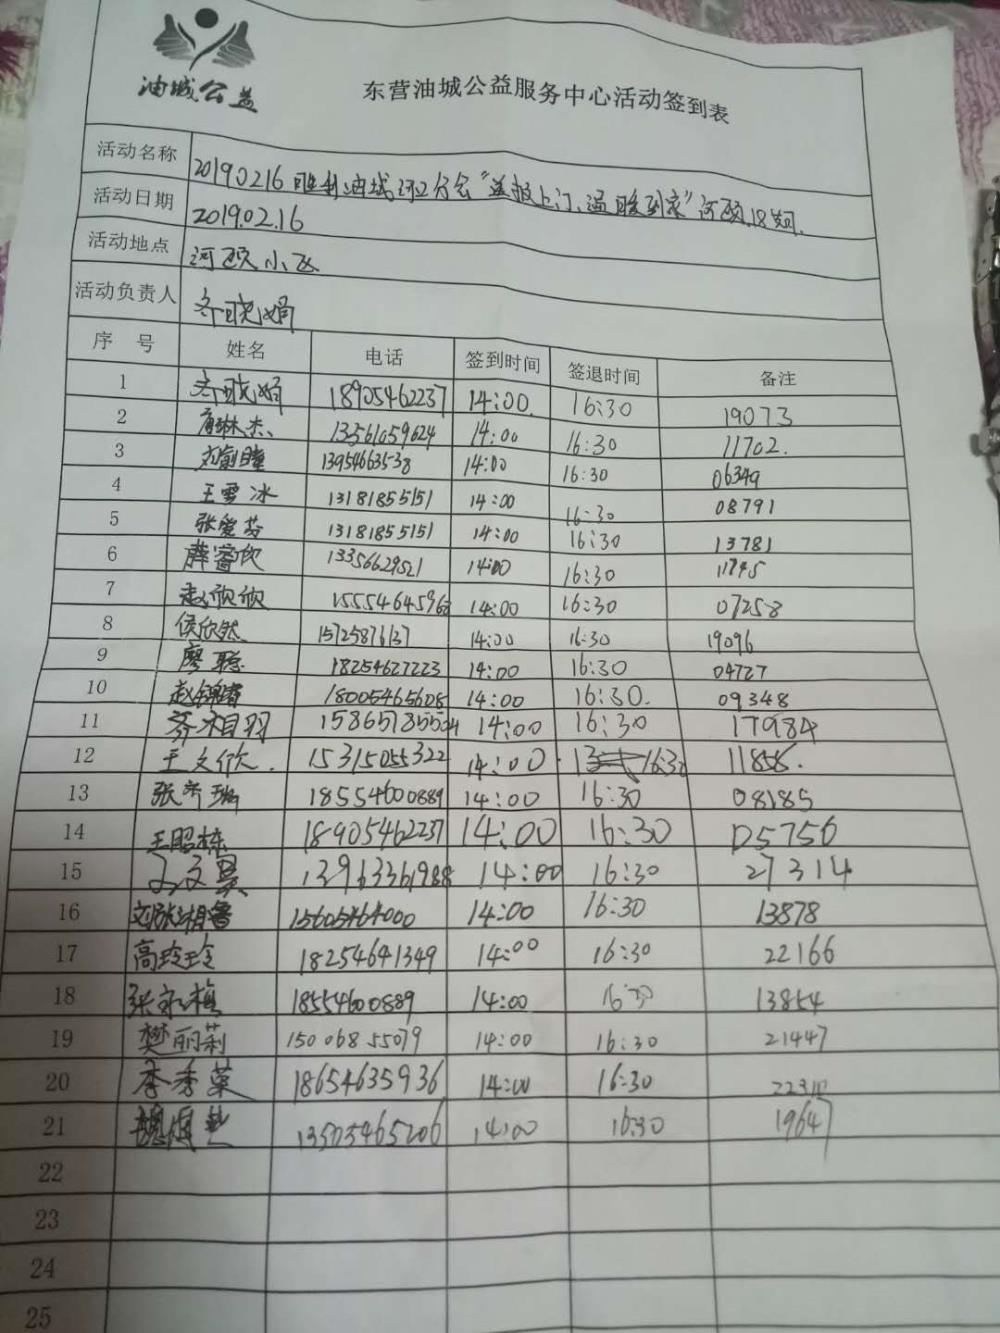 油城公益
东营油城公益服务中心活动签到表
活动名称 20190216胜利油城河口分会“送报上门、温暖到家”河颐.18期.
活动日期 2019.02.16
活动地点 河颐小区
活动负责人 晓娟
序 号 姓名 电话 签到时间 签退时间 备注
1 晓娟 18905462237 14:00 16:30 19073
2 唐琳杰 13561059624 14:00 16:30 11702.
3 13954663538 14:00 16:30 06349
4 王雪冰 13181855151 14:00 16:30 08791
5 张爱芬 13181855151 14:00 16:30 13781
6 薛睿欣 13356629521 14:00 16:30 11745
7 赵欣欣 14:00 16:30 07258
8 侯欣然 15725876137 14:00 16:30 19096
9 廖聪 18254627223 14:00 16:30 04727
10 赵锦睿 18005465608 14:00 16:30. 09348
11 14:00 16:30 17984
12 王文欣. 15315055322 14:00 16:30 11856.
13 张 18554600889 14:00 16:30 08185
14 王昭栋 18905462237 14:00 16:30 05756
15 13963361988 14:00 16:30 27314
16 15605464000 14:00 16:30 13878
17 高玲玲 18254641349 14:00 16:30 22166
18 张 18554600889 14:00 16:30 13854
19 樊丽莉 15006855079 14:00 16:30 21447
20 李秀荣 18654635936 14:00 16:30
21 魏 13505465206 14:00 16:30 19647
22
23
24
25